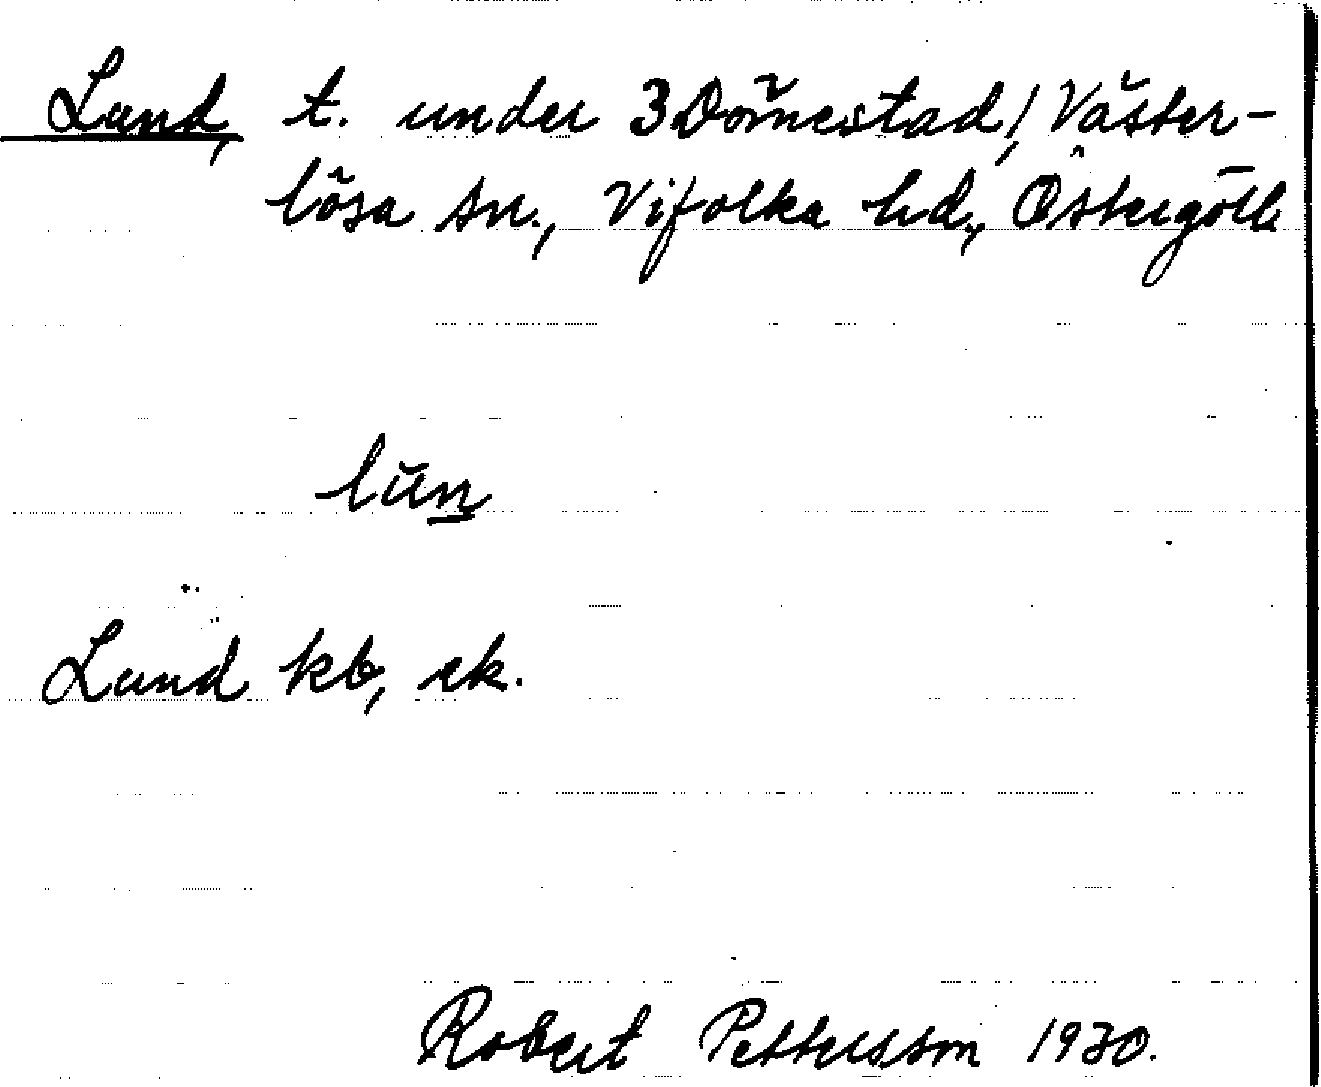 Lund, t. under 3 Dömestad, Väster-
lösa sn., Vifolka hd., Östergötl.
lŭn
Lund kb, sk.
Robert Pettersson 1930.